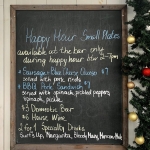 Happy Hour Small Plates
available at the bar only
during happy hour btw 2-7pm
Sausage + Blue Cheese Cheese $7
served with pork rinds
BBQ Pork Sandwich $7
served with spinach, pickled peppers,
spinach, pickle
$3 Domestic Beer
$6 House Wine
2 for 1 Specialty Drinks
Surf's Up, Margarita, Bloody Mary, Mexican Mule